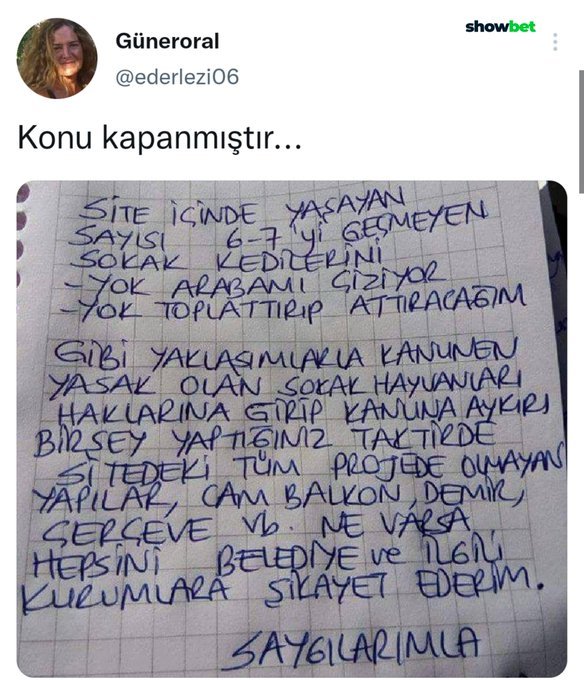 showbet
Güneroral
@ederlezi06
Konu kapanmıştır...
SİTE İÇİNDE YAŞAYAN
SAYISI 6-7'yi GEÇMEYEN
SOKAK KEDİLERİNİ
-YOK ARABAMI ÇİZİYOR
-YOK TOPLATTIRIP ATTIRACAĞIM
GİBİ YAKLAŞIMLARLA KANUNEN
YASAK OLAN SOKAK HAYVANLARI
HAKLARINA GİRİP KANUNA AYKIRI
BİRŞEY YAPTIĞINIZ TAKTİRDE
SİTEDEKİ TÜM PROJEDE OLMAYAN
YAPILAR, CAM BALKON, DEMİR,
ÇERÇEVE vb. NE VARSA
HEPSİNİ BELEDİYE ve İLGİLİ
KURUMLARA ŞİKAYET EDERİM.
SAYGILARIMLA